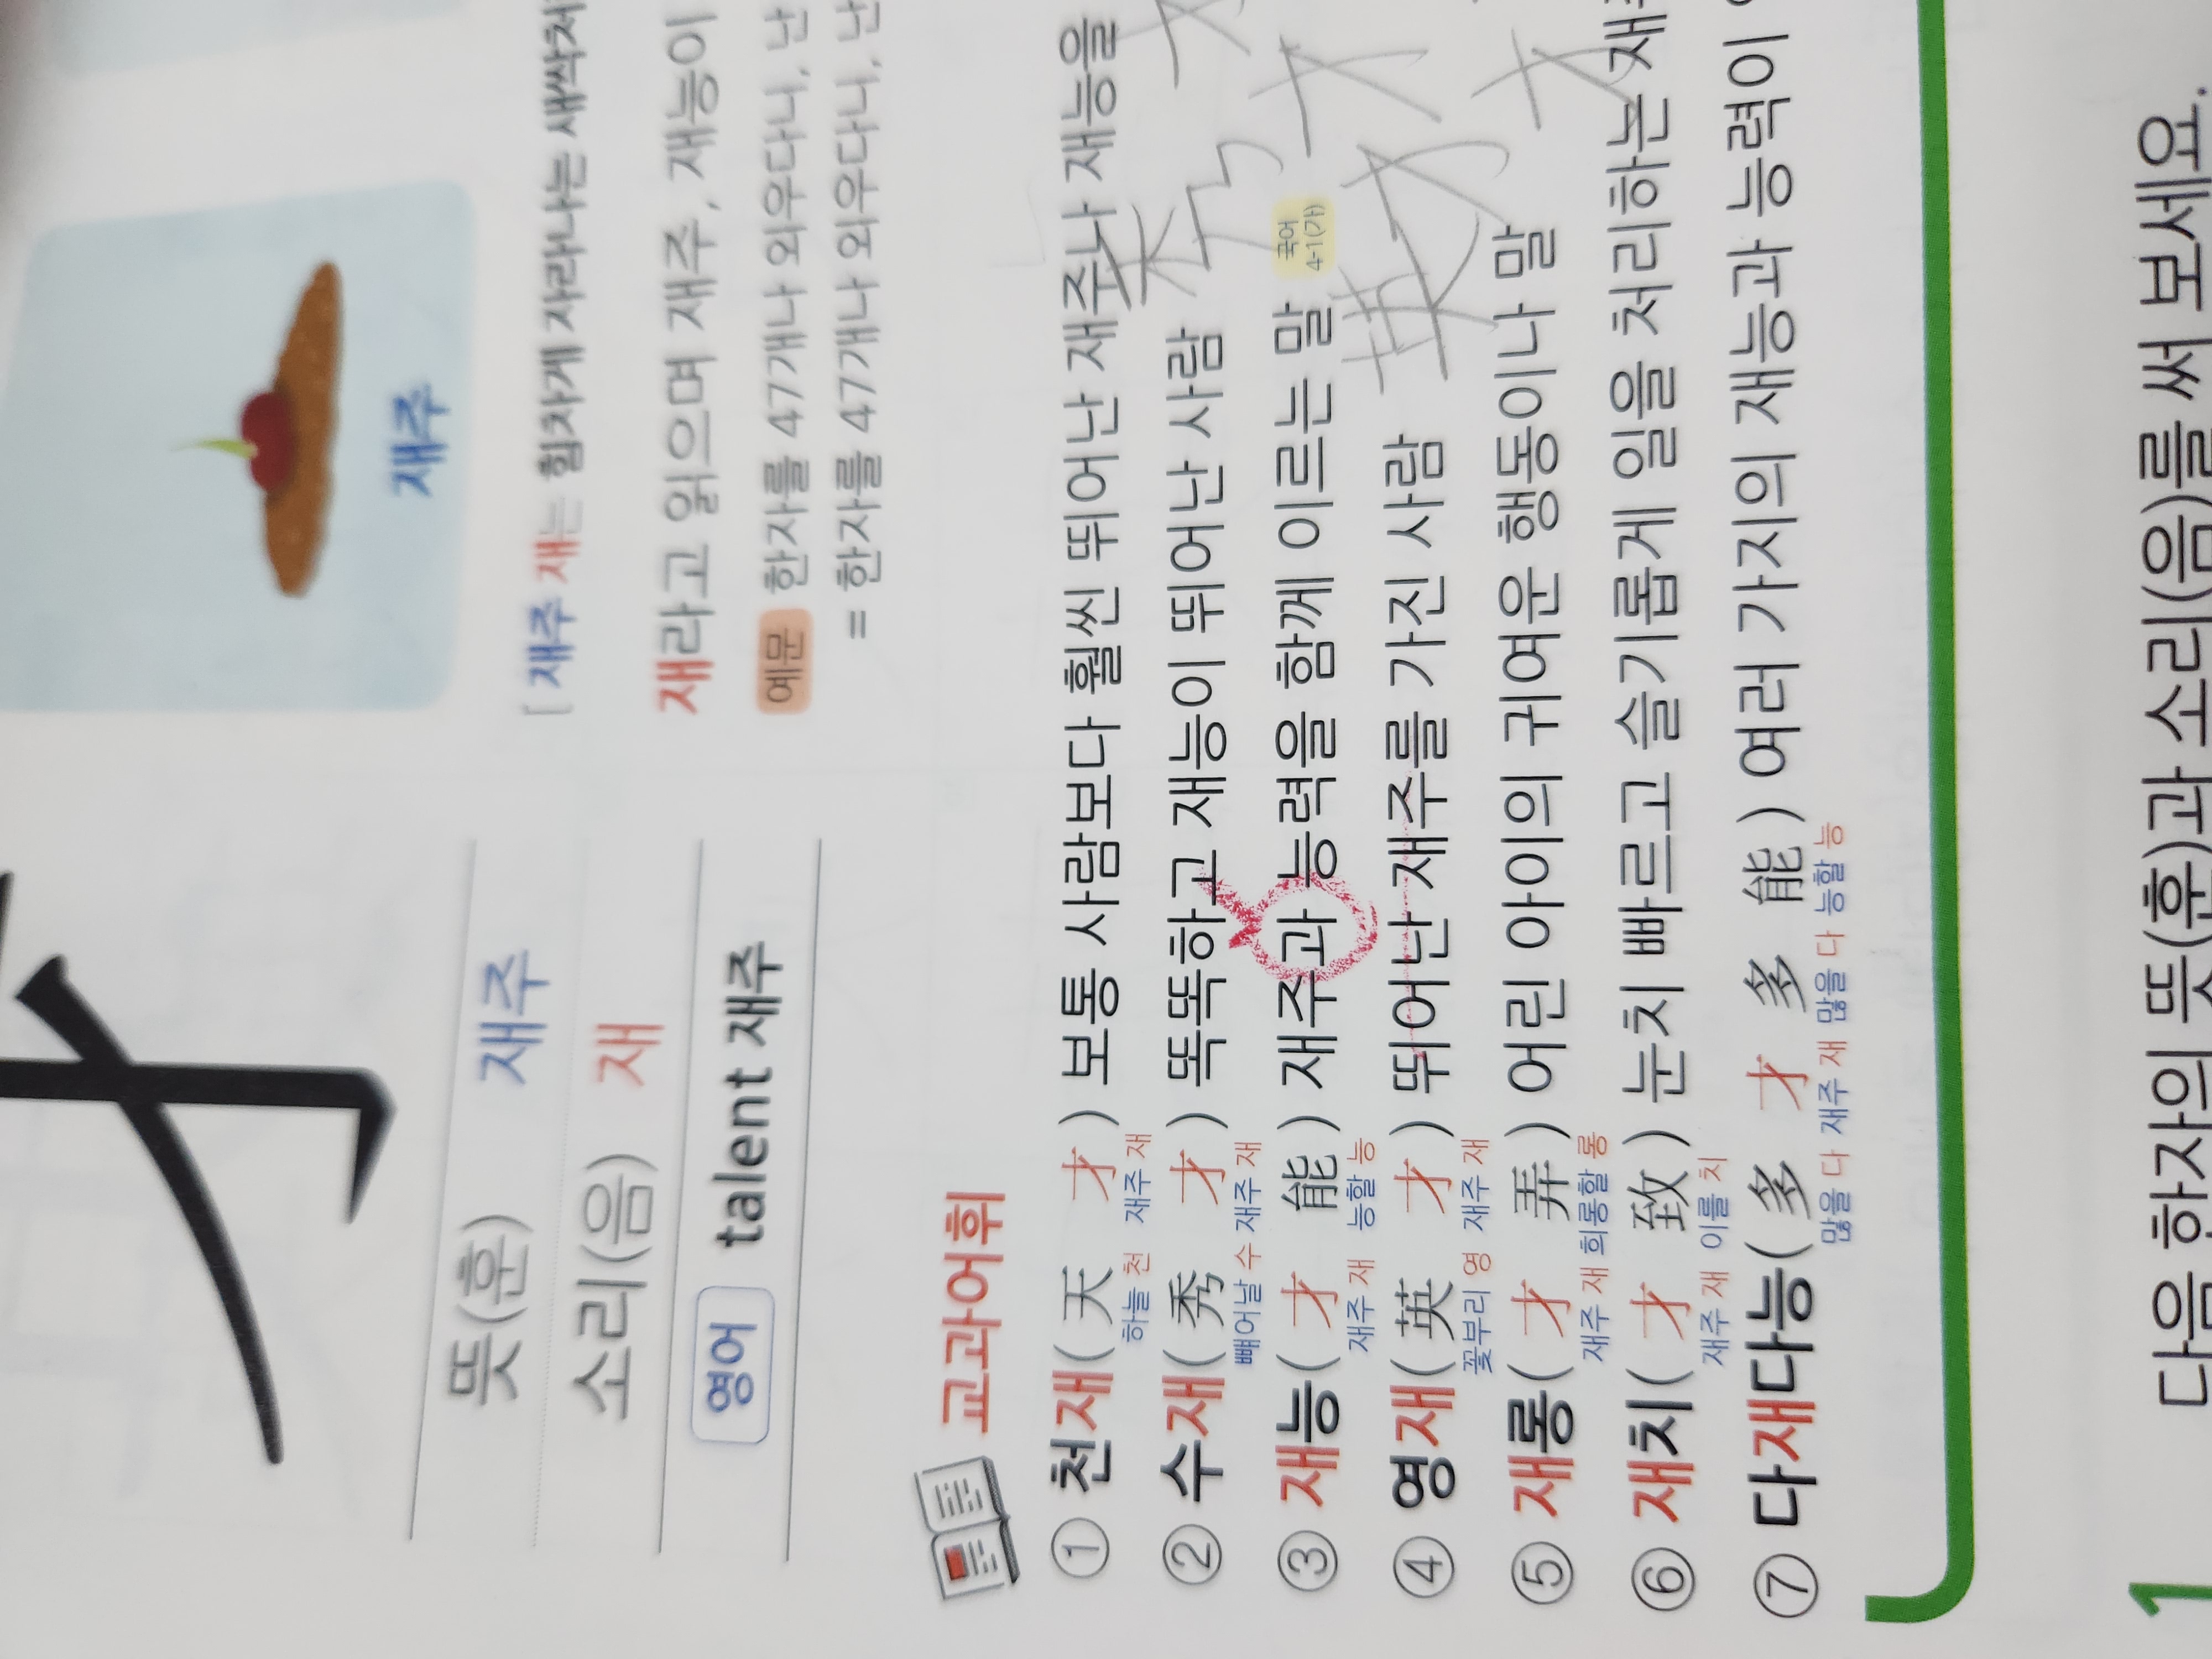 재주
[ 재주 재는 힘차게 자라나는 새싹처
재라고 읽으며 재주, 재능이
예문 한자를 47개나 외우다니, 난
= 한자를 47개나 외우다니, 난
뜻(훈) 재주
소리(음) 재
영어 talent 재주
교과어휘
① 천재( 天 才 ) 보통 사람보다 훨씬 뛰어난 재주나 재능을
하늘 천 재주 재
② 수재( 秀 才 ) 똑똑하고 재능이 뛰어난 사람
빼어날 수 재주 재
秀 才
③ 재능( 才 能 ) 재주과 능력을 함께 이르는 말 국어 4-1(가)
재주 재 능할 능
④ 영재( 英 才 ) 뛰어난 재주를 가진 사람
꽃부리 영 재주 재
英 才
⑤ 재롱( 才 弄 ) 어린 아이의 귀여운 행동이나 말
재주 재 희롱할 롱
⑥ 재치( 才 致 ) 눈치 빠르고 슬기롭게 일을 처리하는 재
재주 재 이를 치
⑦ 다재다능( 多 才 多 能 ) 여러 가지의 재능과 능력이
많을 다 재주 재 많을 다 능할 능
1 다음 한자의 뜻(훈)과 소리(음)를 써 보세요.